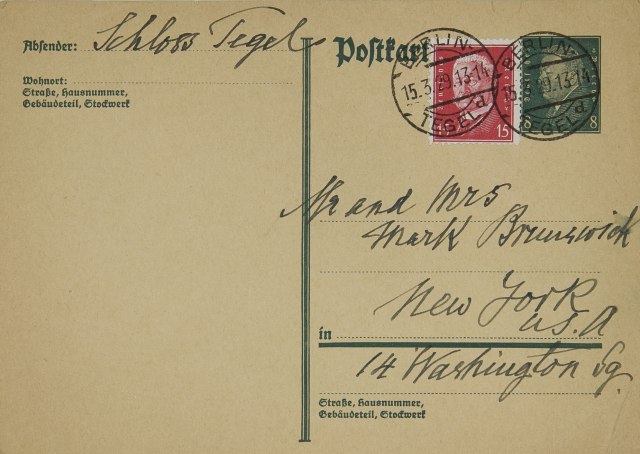 Absender: Schloss Tegel
Wohnort:
Straße, Hausnummer,
Gebäudeteil, Stockwerk
Postkart
BERLIN-
15.3.29.13-14
d
TEGEL
15
BERLIN-
15.3.29.13-14
d
TEGEL
8
8
Mr and Mrs
Mark Brunswick
New York
in
U.S.A
14 Washington Sq.
Straße, Hausnummer,
Gebäudeteil, Stockwerk